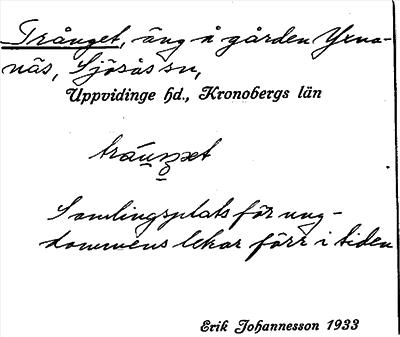 Trånget, äng å gården Yxna-
näs, Sjösås sn,
Uppvidinge hd., Kronobergs län
Samlingsplats för ung-
dommens lekar förr i tiden
Erik Johannesson 1933